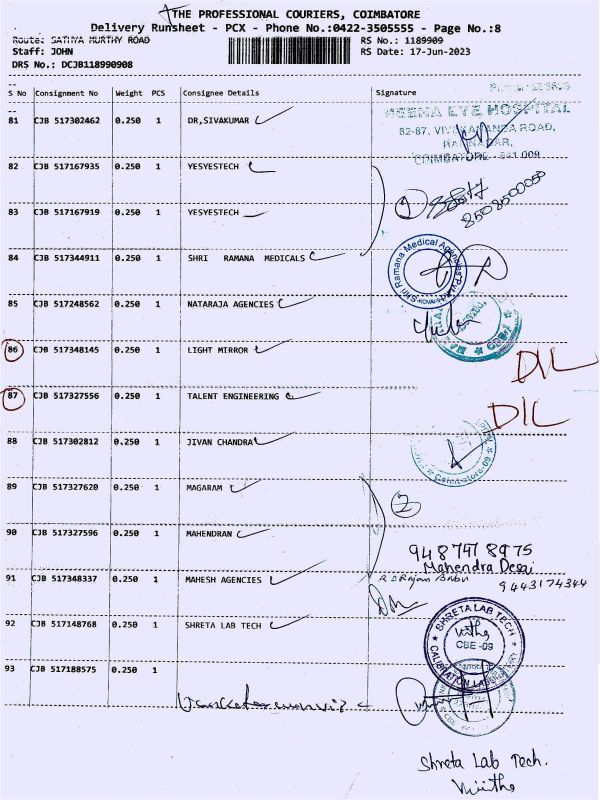 THE PROFESSIONAL COURIERS, COIMBATORE
Delivery Runsheet - PCX - Phone No.:0422-3505555 - Page No.:8
Route: SATHYA MURTHY ROAD
RS No.: 1189909
Staff: JOHN
RS Date: 17-Jun-2023
DRS No.: DCJB118990908
S No Consignment No Weight PCS Consignee Details Signature
81 CJB 517302462 0.250 1 DR,SIVAKUMAR
MEENA EYE HOSPITAL
82-87, VIVEKANANDA ROAD,
RAMNAGAR,
COIMBATORE - 641 009
82 CJB 517167935 0.250 1 YESYESTECH
1
8508500050
83 CJB 517167919 0.250 1 YESYESTECH
84 CJB 517344911 0.250 1 SHRI RAMANA MEDICALS
Shri Ramana Medical Agencies
85 CJB 517248562 0.250 1 NATARAJA AGENCIES
86 CJB 517348145 0.250 1 LIGHT MIRROR
D/L
87 CJB 517327556 0.250 1 TALENT ENGINEERING
D/L
88 CJB 517302812 0.250 1 JIVAN CHANDRA
Coimbatore-09
89 CJB 517327620 0.250 1 MAGARAM
2
90 CJB 517327596 0.250 1 MAHENDRAN
9487478975
Mahendra Desai
91 CJB 517348337 0.250 1 MAHESH AGENCIES
R D Rajan Babu
9443174344
92 CJB 517148768 0.250 1 SHRETA LAB TECH
SHRETA LAB TECH
CBE -09
CALIBRATION LABORATORY
93 CJB 517188575 0.250 1
Shreta Lab Tech.